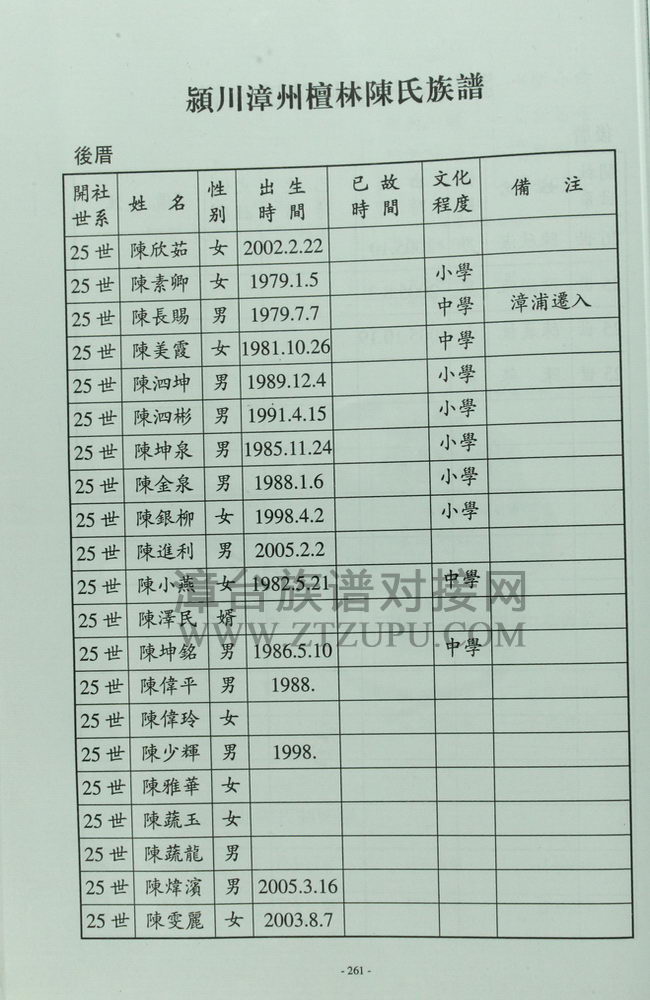 潁川漳州檀林陳氏族譜
後厝
開社世系 姓 名 性别 出生時間 已故時間 文化程度 備 注
25世 陳欣茹 女 2002.2.22
25世 陳素卿 女 1979.1.5 小學
25世 陳長賜 男 1979.7.7 中學 漳浦遷入
25世 陳美霞 女 1981.10.26 中學
25世 陳泗坤 男 1989.12.4 小學
25世 陳泗彬 男 1991.4.15 小學
25世 陳坤泉 男 1985.11.24 小學
25世 陳金泉 男 1988.1.6 小學
25世 陳銀柳 女 1998.4.2 小學
25世 陳進利 男 2005.2.2
25世 陳小燕 女 1982.5.21 中學
漳台族谱对接网
25世 陳澤民 婿
WWW.ZTZUPU.COM
25世 陳坤銘 男 1986.5.10 中學
25世 陳偉平 男 1988.
25世 陳偉玲 女
25世 陳少輝 男 1998.
25世 陳雅華 女
25世 陳蔬玉 女
25世 陳蔬龍 男
25世 陳煒濱 男 2005.3.16
25世 陳雯麗 女 2003.8.7
- 261 -